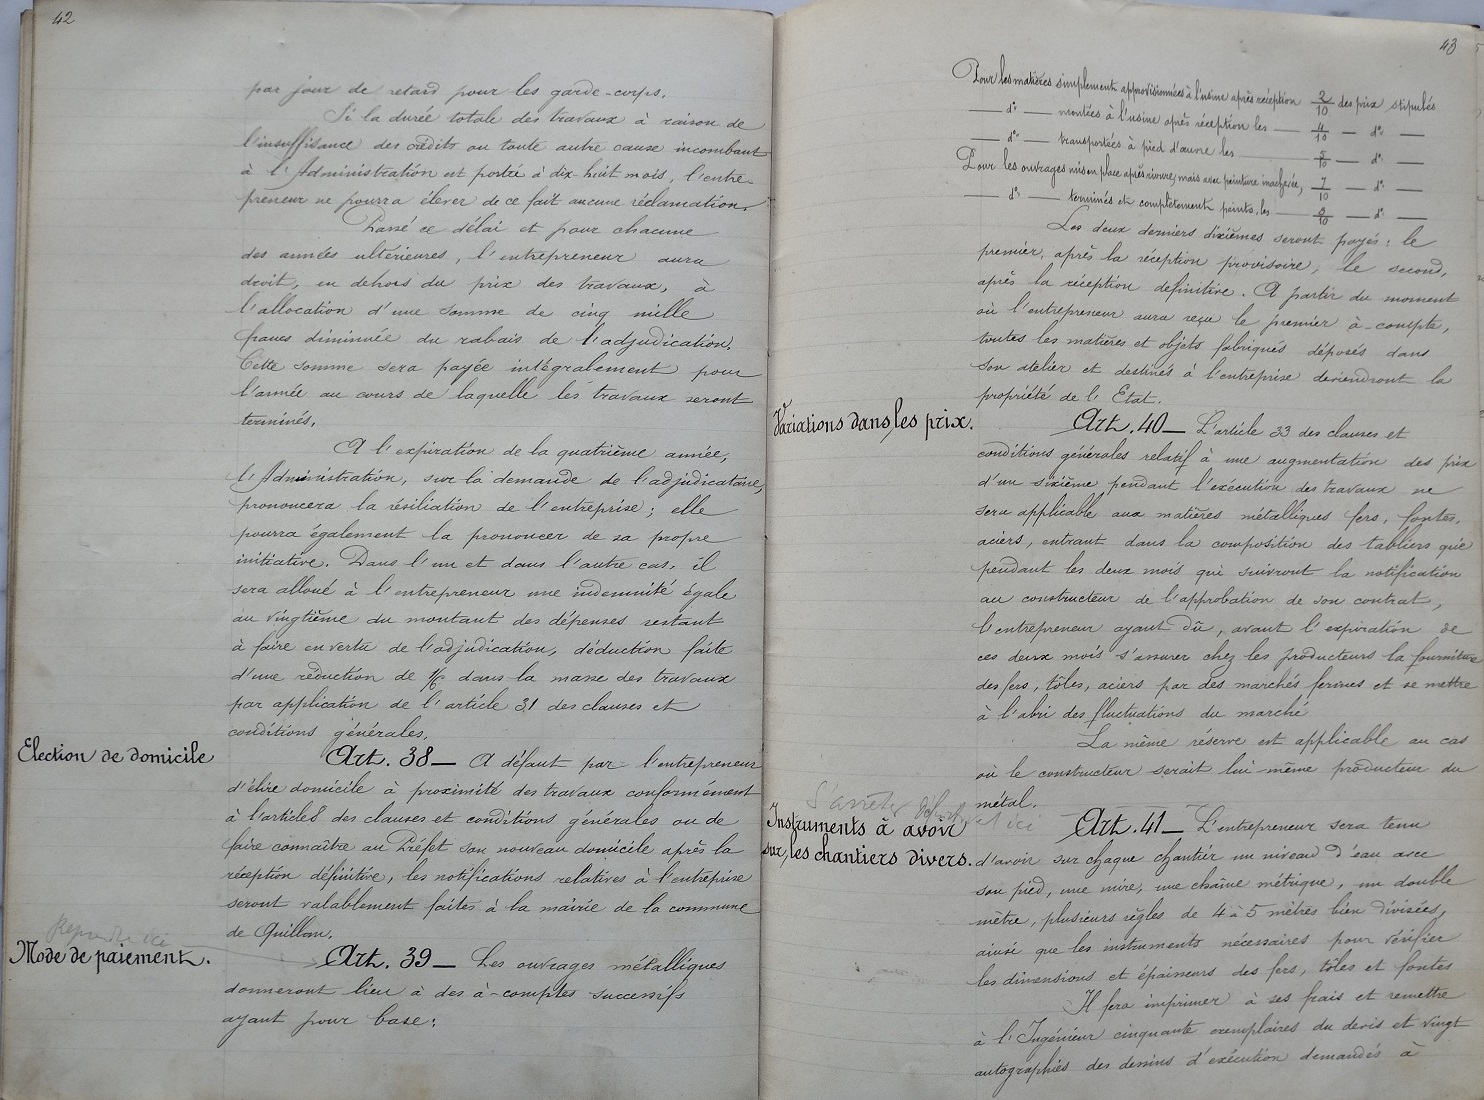 42
par jour de retard pour les garde-corps.
Si la durée totale des travaux à raison de
l'insuffisance des crédits ou toute autre cause incombant
à l'Administration est portée à dix-huit mois, l'entre-
preneur ne pourra élever de ce fait aucune réclamation.
Passé ce délai et pour chacune
des années ultérieures, l'entrepreneur aura
droit, en dehors du prix des travaux, à
l'allocation d'une somme de cinq mille
francs diminuée du rabais de l'adjudication.
Cette somme sera payée intégralement pour
l'année au cours de laquelle les travaux seront
terminés.
A l'expiration de la quatrième année,
l'Administration, sur la demande de l'adjudicataire,
prononcera la résiliation de l'entreprise; elle
pourra également la prononcer de sa propre
initiative. Dans l'un et dans l'autre cas, il
sera alloué à l'entrepreneur une indemnité égale
au vingtième du montant des dépenses restant
à faire en vertu de l'adjudication, déduction faite
d'une réduction de 1/6 dans la masse des travaux
par application de l'article 31 des clauses et
conditions générales.
Election de domicile
Art. 38 — A défaut par l'entrepreneur
d'élire domicile à proximité des travaux conformément
à l'article 8 des clauses et conditions générales ou de
faire connaître au Préfet son nouveau domicile après la
réception définitive, les notifications relatives à l'entreprise
seront valablement faites à la mairie de la commune
de Quillan.
Reprendre ici
Mode de paiement.
Art. 39 — Les ouvrages métalliques
donneront lieu à des à-comptes successifs
ayant pour base:
43
Pour les matières simplement approvisionnées à l'usine après réception 2/10 des prix stipulés
— d° — montées à l'usine après réception les — 4/10 — d° —
— d° — transportées à pied d'œuvre les — 5/10 — d° —
Pour les ouvrages mis en place après rivure, mais avec peinture inachevée, 7/10 — d° —
— d° — terminés et complètement peints, les — 8/10 — d° —
Les deux derniers dixièmes seront payés: le
premier, après la réception provisoire, le second,
après la réception définitive. A partir du moment
où l'entrepreneur aura reçu le premier à-compte,
toutes les matières et objets fabriqués déposés dans
son atelier et destinés à l'entreprise deviendront la
propriété de l'Etat.
Variations dans les prix.
Art. 40 — L'article 33 des clauses et
conditions générales relatif à une augmentation des prix
d'un sixième pendant l'exécution des travaux ne
sera applicable aux matières métalliques fers, fontes,
aciers, entrant dans la composition des tabliers que
pendant les deux mois qui suivront la notification
au constructeur de l'approbation de son contrat,
l'entrepreneur ayant dû, avant l'expiration de
ces deux mois s'assurer chez les producteurs la fourniture
des fers, tôles, aciers par des marchés fermes et se mettre
à l'abri des fluctuations du marché
La même réserve est applicable au cas
où le constructeur serait lui-même producteur du
métal.
S'arrêter ici
Instruments à avoir
sur les chantiers divers.
Art. 41 — L'entrepreneur sera tenu
d'avoir sur chaque chantier un niveau d'eau avec
son pied, une mire, une chaîne métrique, un double
mètre, plusieurs règles de 4 à 5 mètres bien divisées,
ainsi que les instruments nécessaires pour vérifier
les dimensions et épaisseurs des fers, tôles et fontes
Il fera imprimer à ses frais et remettre
à l'Ingénieur cinquante exemplaires du devis et vingt
autographiés des dessins d'exécution demandés à